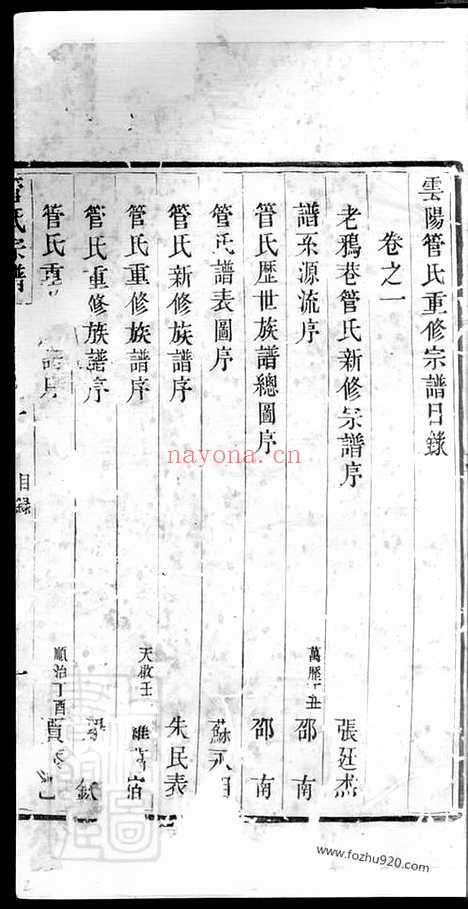 雲陽管氏重修宗譜目錄
卷之一
老鴉巷管氏新修宗譜序 張廷杰
譜系源流序 萬歷丁丑 邵南
管氏歷世族譜總圖序 邵南
管氏譜表圖序 蘇
管氏新修族譜序 朱民表
管氏重修族譜序 天啟壬
管氏重修族譜序 欽
管氏重 譜序 順治丁酉 賈
管氏宗譜 目錄 一
nayona.cn
www.fozhu920.com